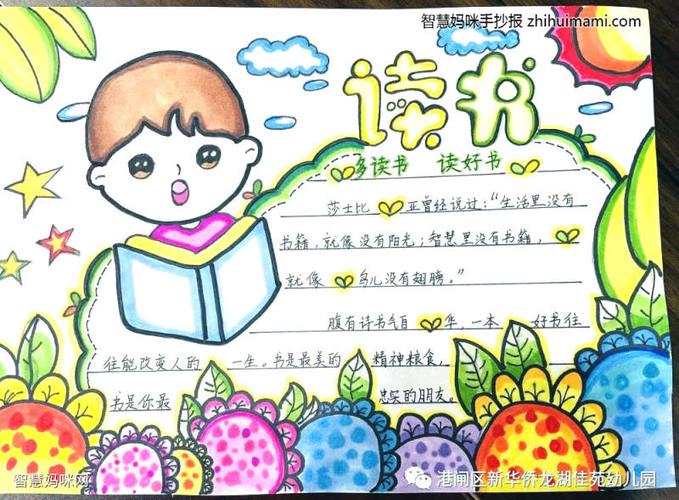 智慧妈咪手抄报 zhihuimami.com
读书
多读书 读好书
莎士比亚曾经说过:“生活里没有
书籍,就像没有阳光;智慧里没有书籍,
就像鸟儿没有翅膀。”
腹有诗书气自华,一本好书往
往能改变人的一生。书是最美的精神粮食,
书是你最忠实的朋友。
智慧妈咪网
港闸区新华侨龙湖佳苑幼儿园